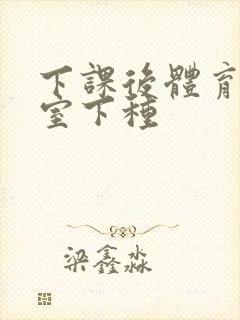 下課後體育
室下種
梁鑫淼